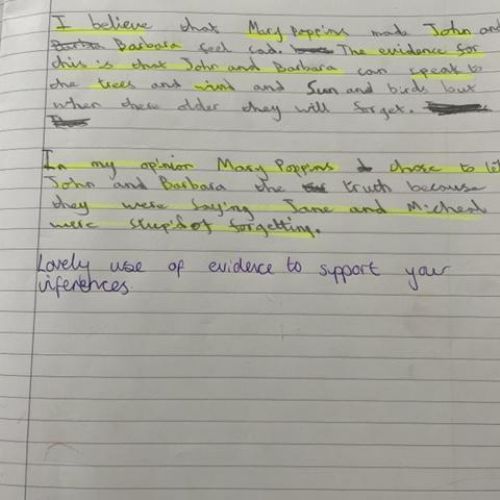 I believe that Mary Poppins made John and
Barbara feel sad. The evidence for
this is that John and Barbara can speak to
the trees and wind and Sun and birds but
when there older they will forget.
In my opinion Mary Poppins chose to
John and Barbara the truth because
they were saying Jane and Micheal
were stupid of forgetting.
Lovely use of evidence to support your
inferences